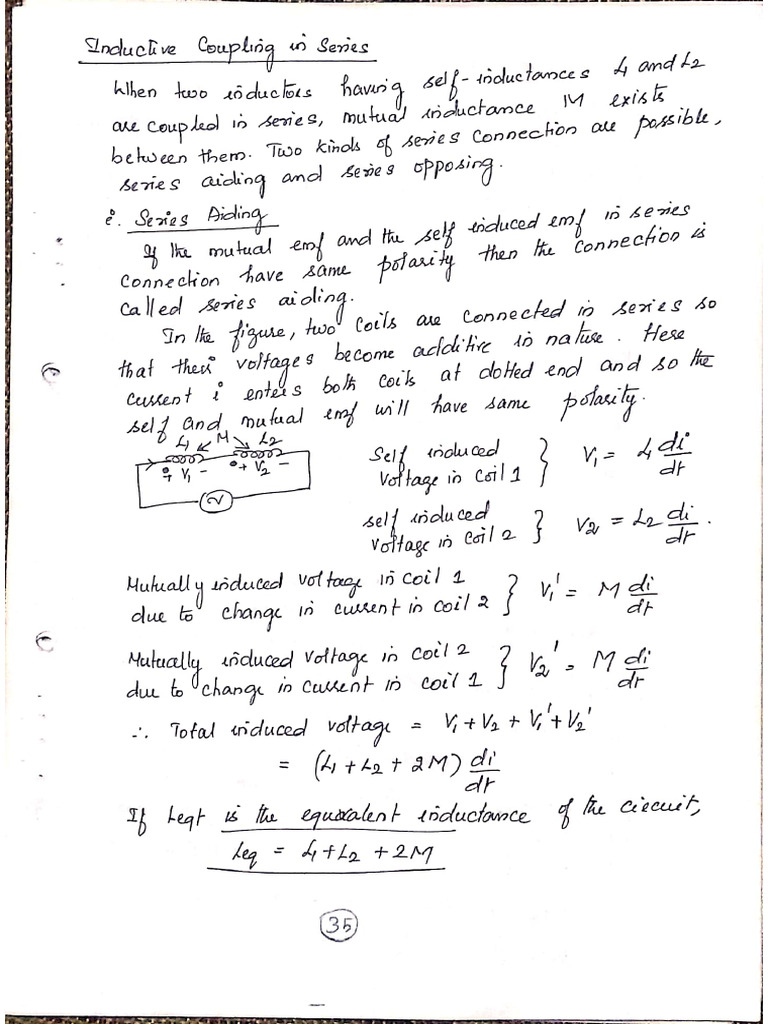 Inductive Coupling in Series
When two inductors having self-inductances L1 and L2
are coupled in series, mutual inductance M exists
between them. Two kinds of series connection are possible,
series aiding and series opposing.
i. Series Aiding
If the mutual emf and the self induced emf in series
connection have same polarity then the connection is
called series aiding.
In the figure, two coils are connected in series so
that their voltages become additive in nature. Here
current i enters both coils at dotted end and so the
self and mutual emf will have same polarity.
L1 M L2
+ V1 - + V2 -
Self induced
Voltage in coil 1 } V1 = L1 di/dt
self induced
voltage in coil 2 } V2 = L2 di/dt.
Mutually induced voltage in coil 1
due to change in current in coil 2 } V1' = M di/dt
Mutually induced voltage in coil 2
due to change in current in coil 1 } V2' = M di/dt
∴ Total induced voltage = V1 + V2 + V1' + V2'
= (L1 + L2 + 2M) di/dt
If Leqt is the equivalent inductance of the circuit,
Leq = L1 + L2 + 2M
35